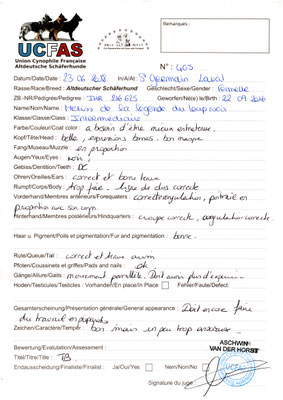 UCFAS
Union Cynophile Française
Altdeutsche Schäferhunde
Remarques :
N° : 405
Datum/Date/Date : 23 06 2018 In/A/At : St Germain Laval
Rasse/Race/Breed : Altdeutscher Schäferhund Geschlecht/Sexe/Gender : Femelle
ZB -NR/Pedigree/Pedigree : Geworfen/Né(e) le/Birth : 22 09 2016
Name/Nom/Name : de la légende du loup noir
Klasse/Classe/Class : Intermédiaire
Farbe/Couleur/Coat color : a besoin d'être mieux entretenue.
Kopf/Tête/Head : belle, expressions bonnes. bon masque
Fang/Museau/Muzzle : en proportion
Augen/Yeux/Eyes : noir
Gebiss/Dentition/Teeth : DC
Ohren/Oreilles/Ears : correct et bien tenue
Rumpf/Corps/Body : trop fine. ligne de dos correcte
Vorderhand/Membres antérieurs/Forequarters : correcte angulation, poitrail en
proportion avec son corps.
Hinterhand/Membres postérieurs/Hindquarters : croupe correcte, angulation correcte.
Haar u. Pigment/Poils et pigmentation/Fur and pigmentation : bonne.
Rute/Queue/Tail : correct et tenue
Pfoten/Coussinets et griffes/Pads and nails : ok
Gänge/Allure/Gaits : mouvement parallèle. Doit avoir plus d'
Hoden/Testicules/Testicles : Vorhanden/En place/In place Fehler/Faute/Defect
Gesamterscheinung/Présentation générale/General appearance : Doit encore faire
du travail
Zeichen/Caractère/Temper : bon mais un peu trop anxieuse.
Bewertung/Evaluation/Assessment :
Titel/Titre/Title : TB
Endausscheidung/Finaliste/Finalist : Ja/Oui/Yes Nein/Non/No
Signature du juge
ASCHWIN
VAN DER HORST
UCFAS